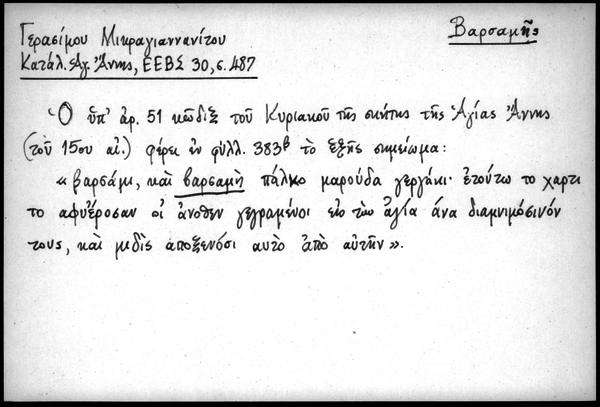 Γερασίμου Μικραγιαννανίτου
Βαρσαμῆς
Κατάλ. Ἁγ. Ἄννης, ΕΕΒΣ 30, σ. 487
Ὁ ὑπ' ἀρ. 51 κῶδιξ τοῦ Κυριακοῦ τῆς σκήτης τῆς Ἁγίας Ἄννης
(τοῦ 15ου αἰ.) φέρει ἐν φύλλ. 383β τὸ ἑξῆς σημείωμα:
« βαρσάμι, καὶ βαρσαμὴ πάλκο μαρούδα γεργάκι· ἐτούτω το χαρτι
το αφυέροσαν οἱ ἄνοθεν γεγραμένοι εἰς τὼ ἁγία ἄνα διαμνιμόσινόν
τους, καὶ μιδὶς ἀποξενόσι αυτὸ ἀπὸ αὐτὴν ».